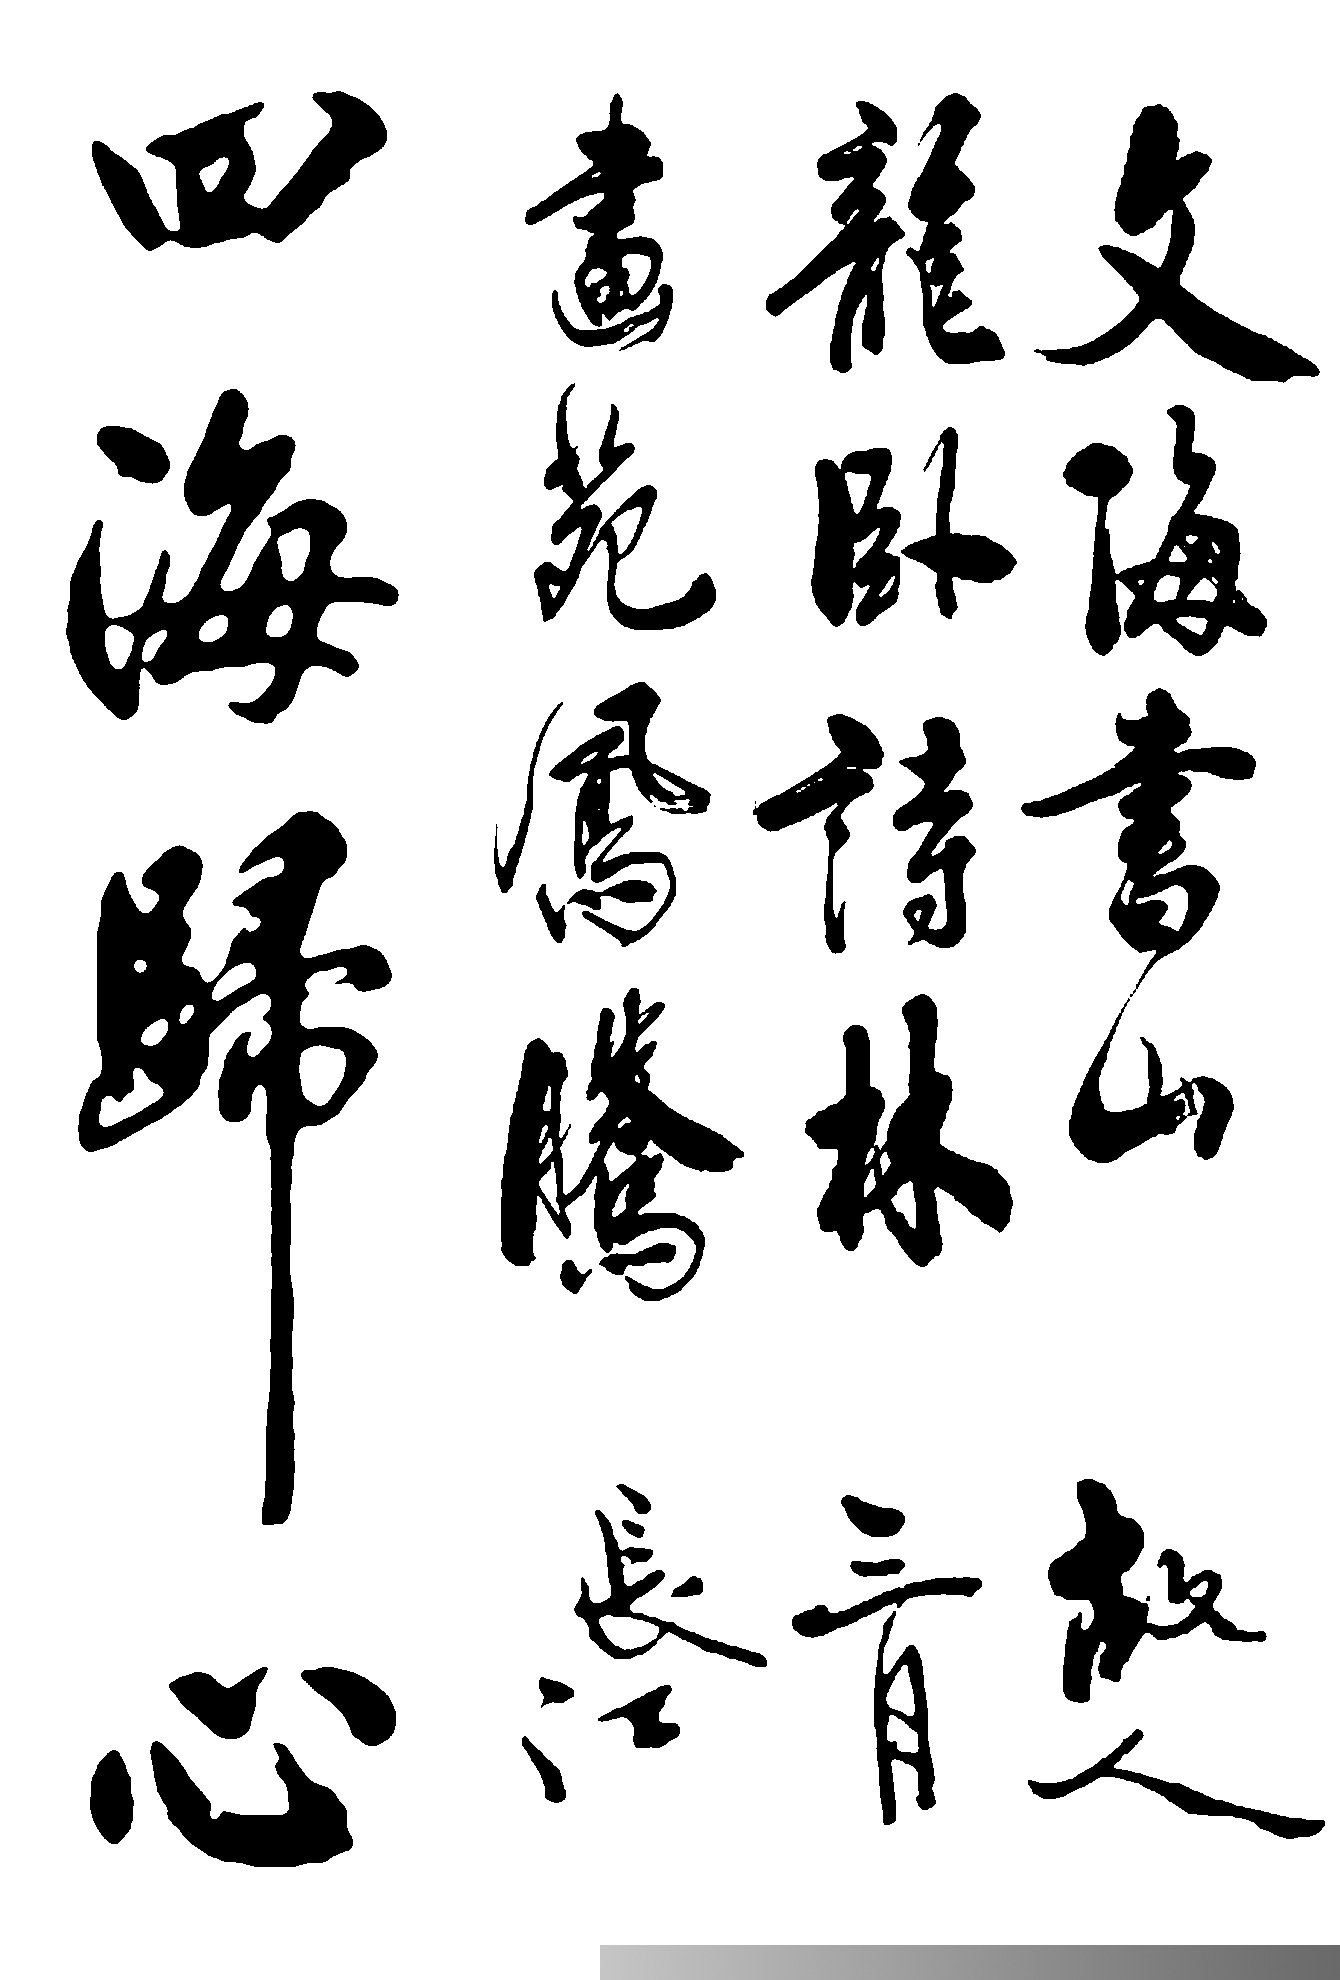 文海書山
龍臥詩林
畫苑鳳騰
故人
三月
長江
四海歸心